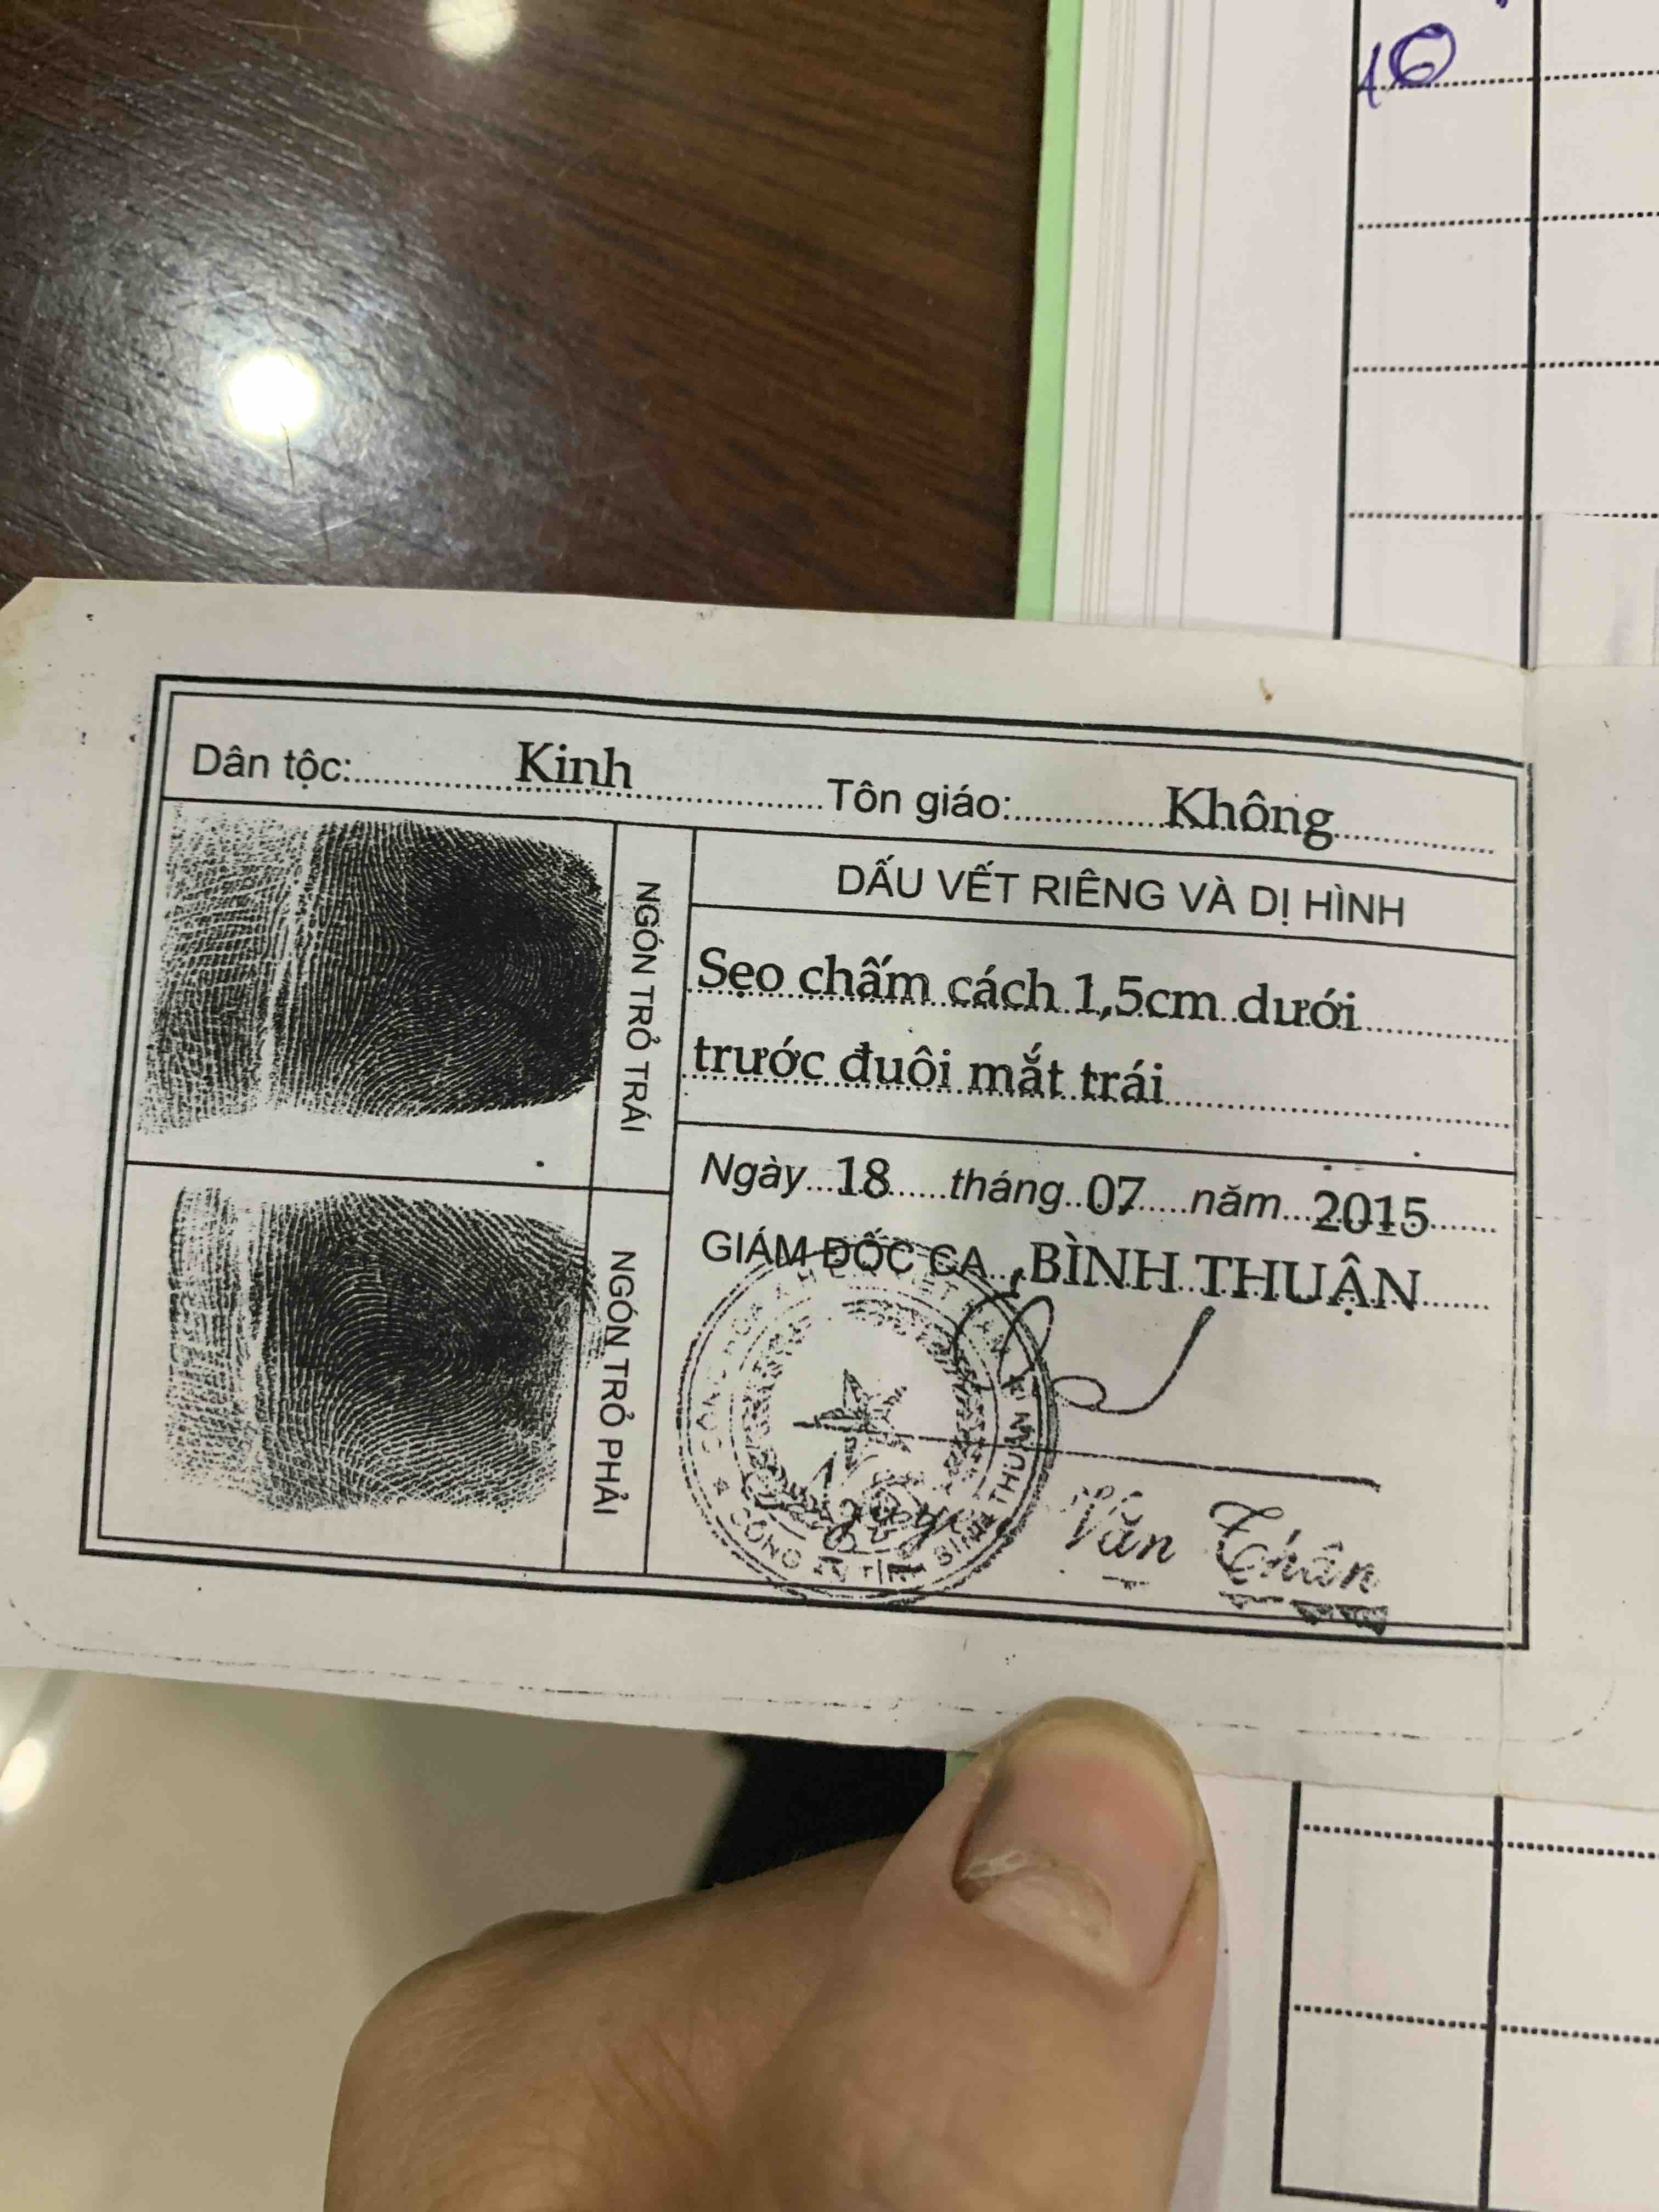 10
Dân tộc: Kinh Tôn giáo: Không
NGÓN TRỎ TRÁI
DẤU VẾT RIÊNG VÀ DỊ HÌNH
Sẹo chấm cách 1,5cm dưới
trước đuôi mắt trái
Ngày 18 tháng 07 năm 2015
GIÁM ĐỐC CA BÌNH THUẬN
NGÓN TRỎ PHẢI
CÔNG AN TỈNH BÌNH THUẬN
Văn Thân